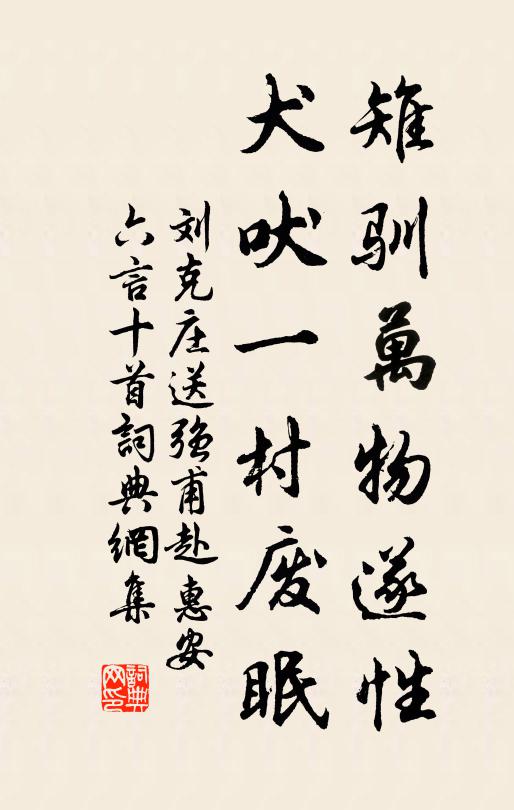 雉驯萬物遂性
犬吠一村废眠
刘克庄送强甫赴惠安
六言十首詞典網集
詞典
网印